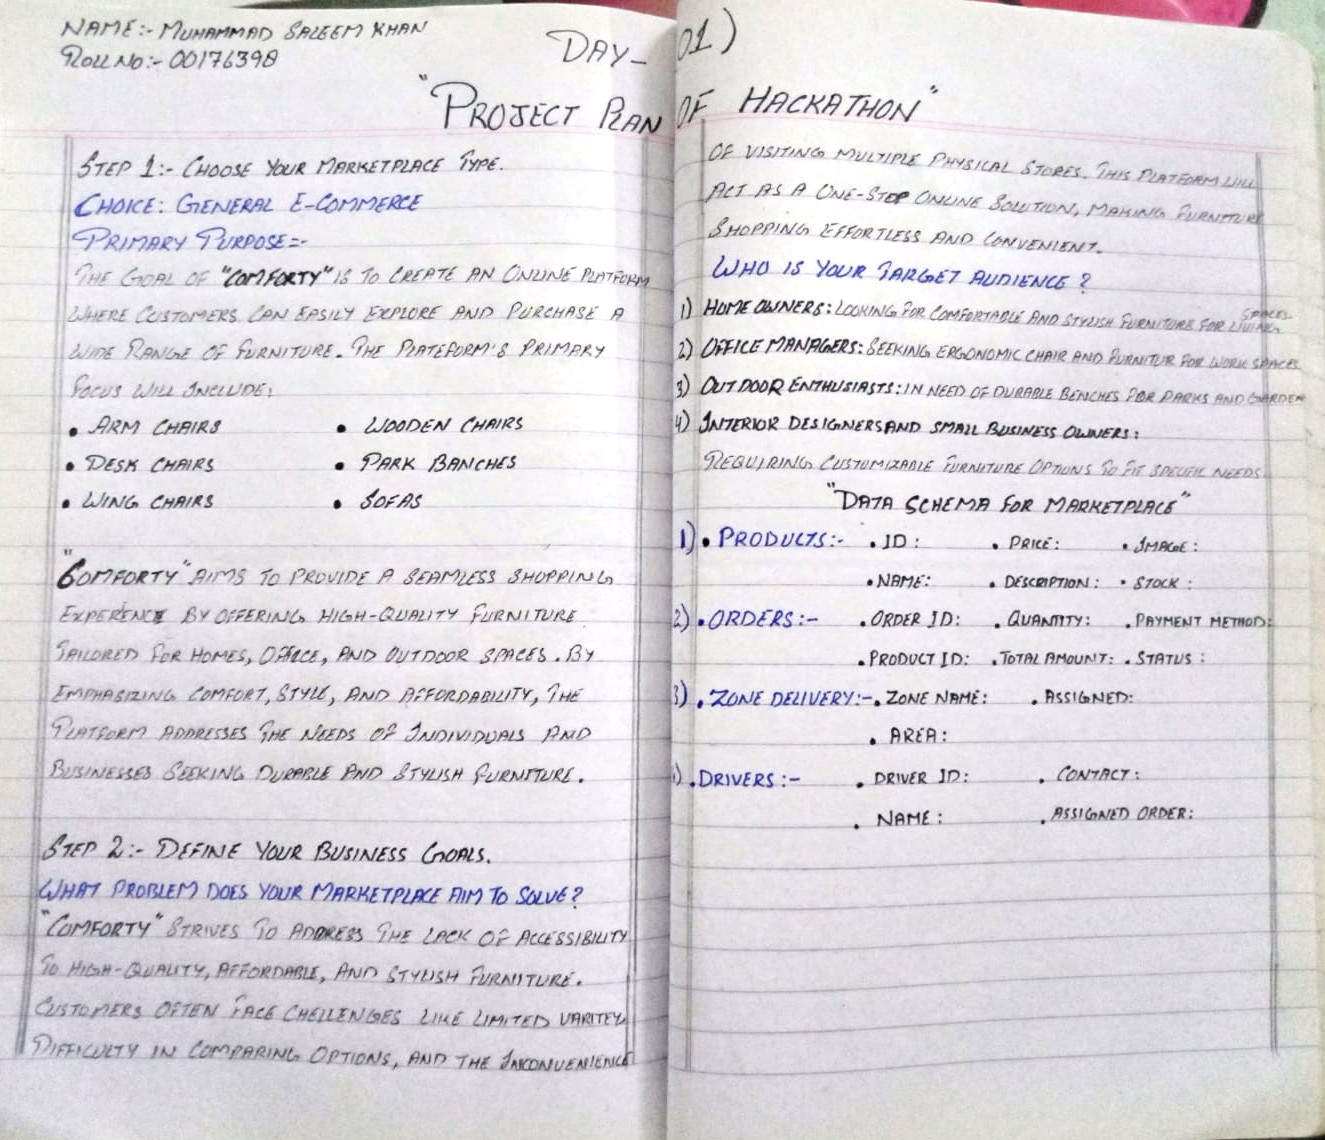 NAME:- MUHAMMAD SALEEM KHAN
ROLL NO:- 00176398
DAY- 01)
"PROJECT PLAN OF HACKATHON"
STEP 1:- CHOOSE YOUR MARKETPLACE TYPE.
CHOICE: GENERAL E-COMMERCE
PRIMARY PURPOSE:-
THE GOAL OF "COMFORTY" IS TO CREATE AN ONLINE PLATFORM
WHERE CUSTOMERS CAN EASILY EXPLORE AND PURCHASE A
WIDE RANGE OF FURNITURE. THE PLATEFORM'S PRIMARY
FOCUS WILL INCLUDE:
• ARM CHAIRS • WOODEN CHAIRS
• DESK CHAIRS • PARK BANCHES
• WING CHAIRS • SOFAS
"COMFORTY" AIMS TO PROVIDE A SEAMLESS SHOPPING
EXPERIENCE BY OFFERING HIGH-QUALITY FURNITURE
TAILORED FOR HOMES, OFFICE, AND OUTDOOR SPACES. BY
EMPHASIZING COMFORT, STYLE, AND AFFORDABILITY, THE
PLATFORM ADDRESSES THE NEEDS OF INDIVIDUALS AND
BUSINESSES SEEKING DURABLE AND STYLISH FURNITURE.
STEP 2:- DEFINE YOUR BUSINESS GOALS.
WHAT PROBLEM DOES YOUR MARKETPLACE AIM TO SOLVE?
"COMFORTY" STRIVES TO ADDRESS THE LACK OF ACCESSIBILITY
TO HIGH-QUALITY, AFFORDABLE, AND STYLISH FURNITURE.
CUSTOMERS OFTEN FACE CHELLENGES LIKE LIMITED VARITEY,
DIFFICULTY IN COMPARING OPTIONS, AND THE INCONVENIENCE
OF VISITING MULTIPLE PHYSICAL STORES. THIS PLATFORM WILL
ACT AS A ONE-STOP ONLINE SOLUTION, MAKING FURNITURE
SHOPPING EFFORTLESS AND CONVENIENT.
WHO IS YOUR TARGET AUDIENCE?
1) HOME OWNERS: LOOKING FOR COMFORTABLE AND STYLISH FURNITURE FOR LIVING SPACES.
2) OFFICE MANAGERS: SEEKING ERGONOMIC CHAIR AND FURNITUR FOR WORK SPACES
3) OUTDOOR ENTHUSIASTS: IN NEED OF DURABLE BENCHES FOR PARKS AND GARDEN
4) INTERIOR DESIGNERS AND SMALL BUSINESS OWNERS:
REQUIRING CUSTOMIZABLE FURNITURE OPTIONS TO FIT SPECIFIC NEEDS.
"DATA SCHEMA FOR MARKETPLACE"
1) • PRODUCTS:- • ID: • PRICE: • IMAGE:
• NAME: • DESCRIPTION: • STOCK:
2) • ORDERS:- • ORDER ID: • QUANTITY: • PAYMENT METHOD:
• PRODUCT ID: • TOTAL AMOUNT: • STATUS:
3) • ZONE DELIVERY:- • ZONE NAME: • ASSIGNED:
• AREA:
) • DRIVERS:- • DRIVER ID: • CONTACT:
• NAME: • ASSIGNED ORDER: